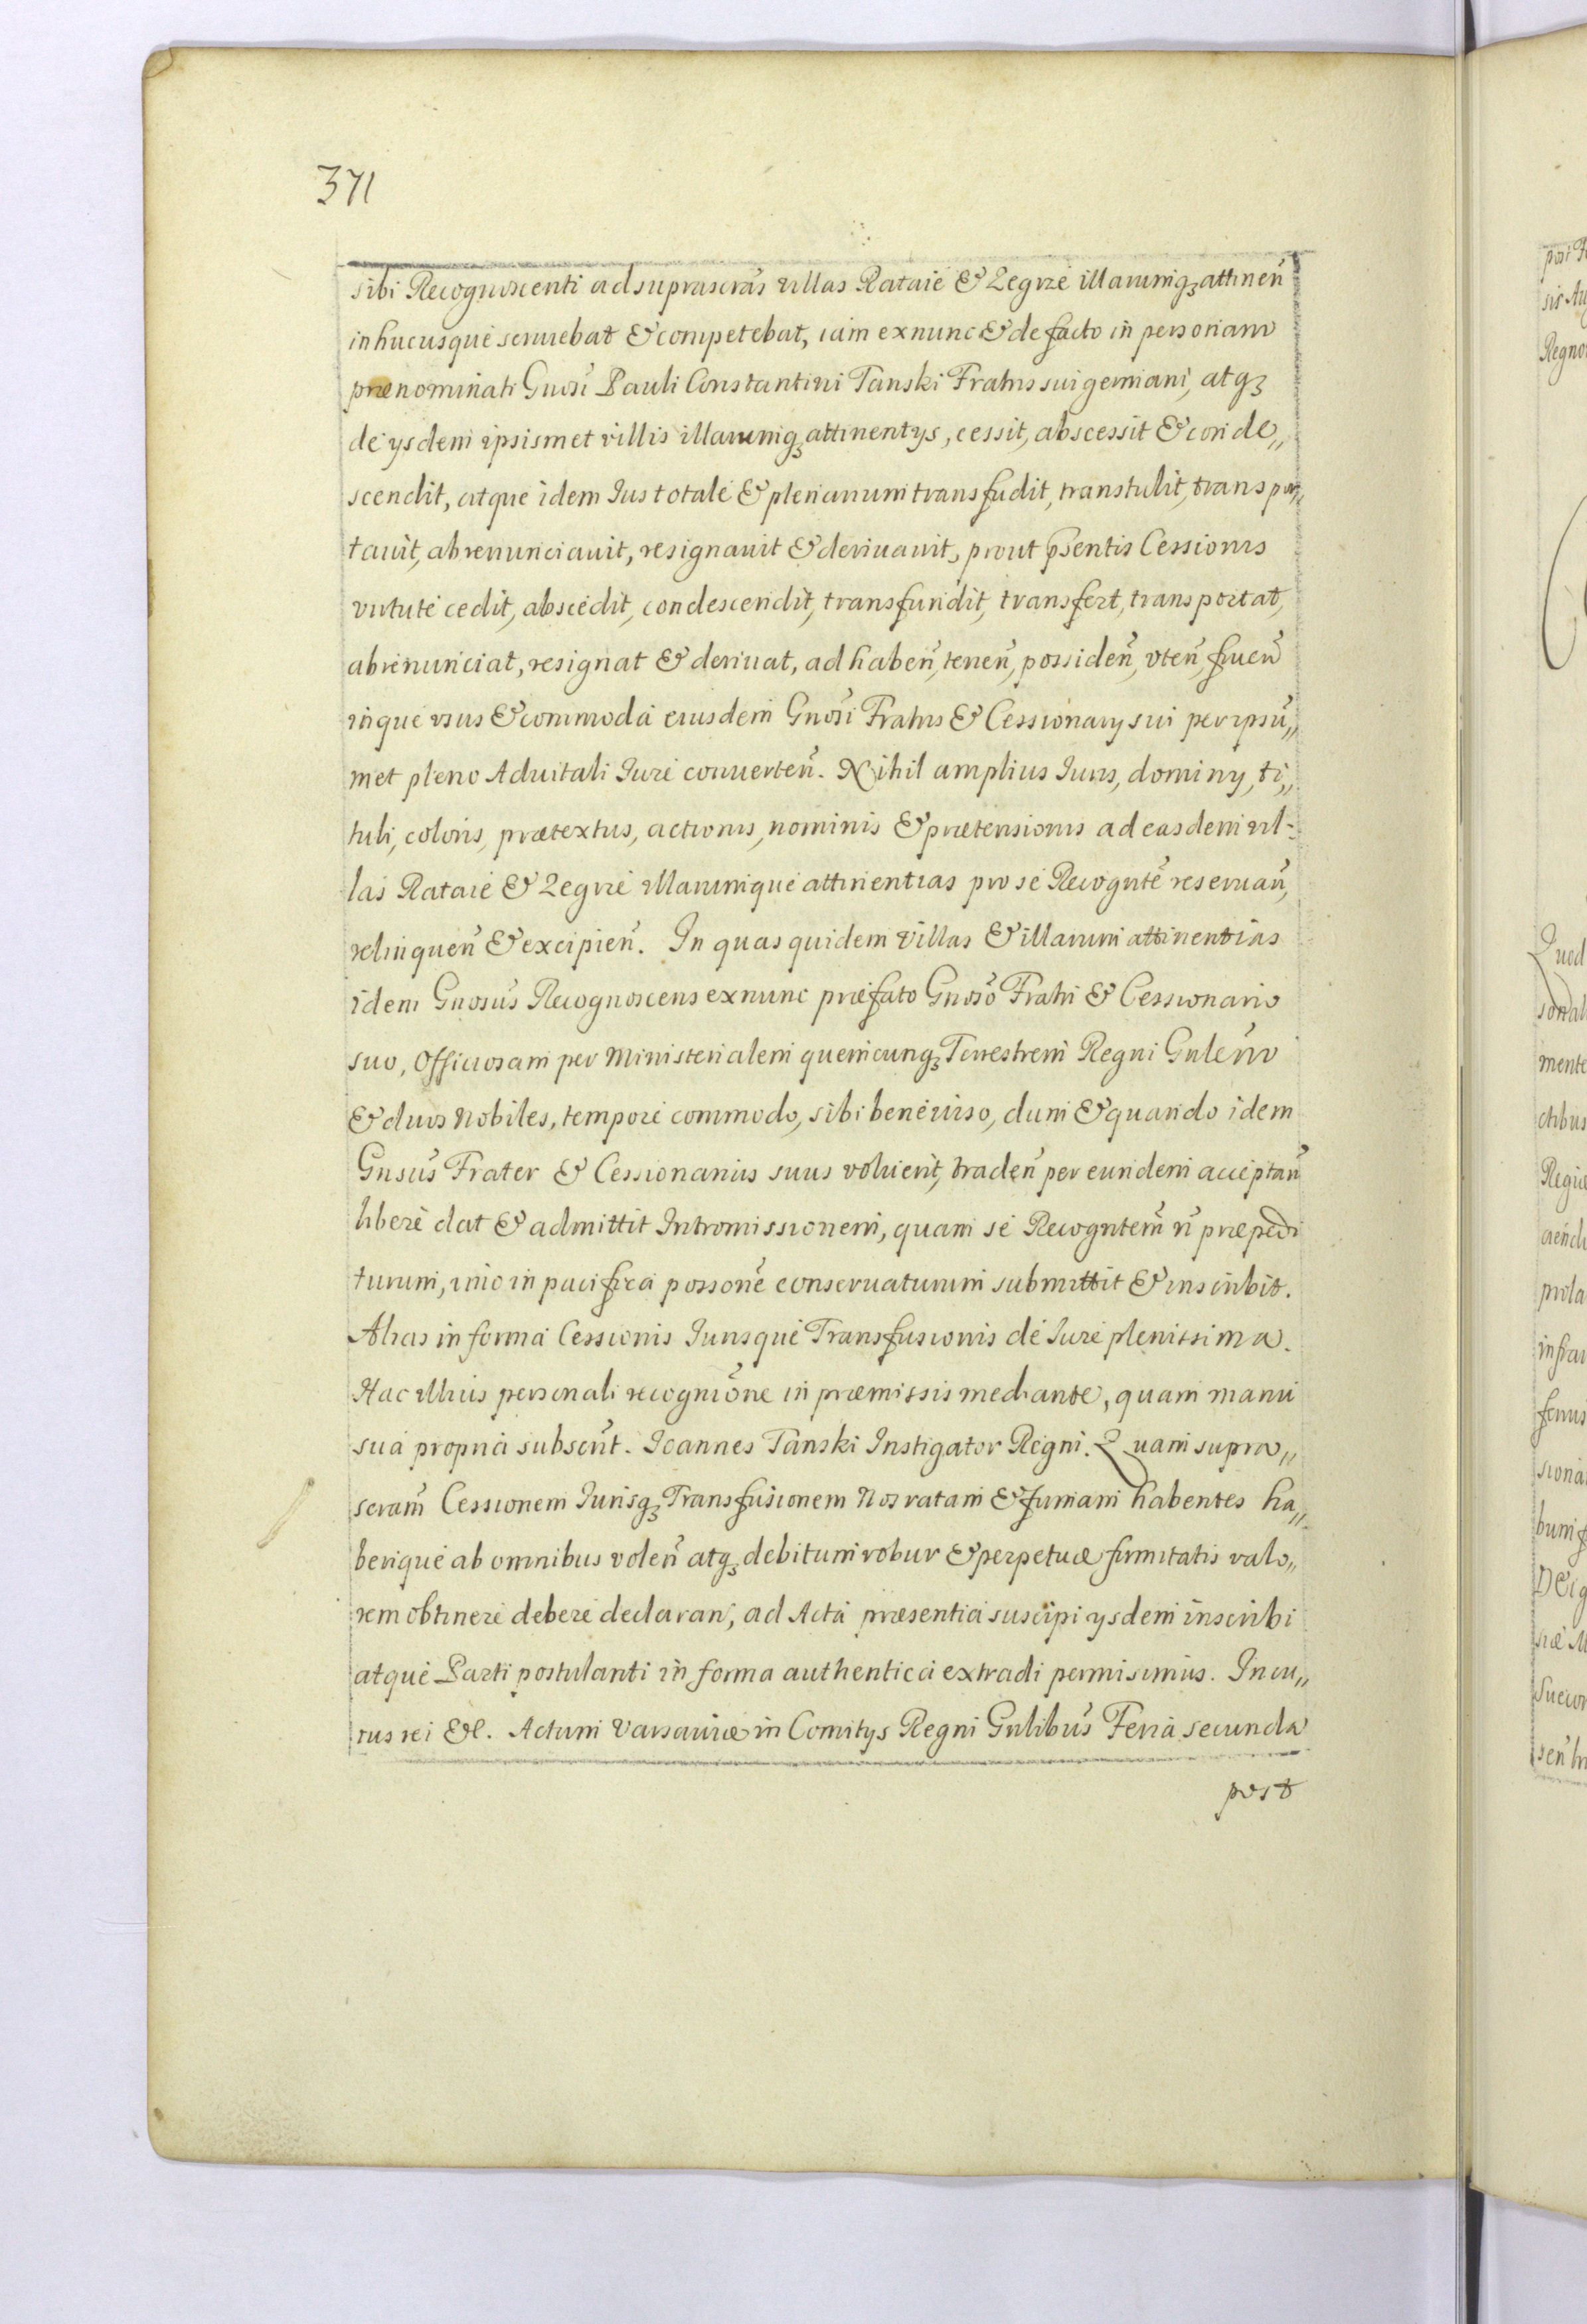 371
sibi Recognoscenti ad suprascrãs villas Rataie & Zegrze illarumqꝫ attineñ
inhucusque seruiebat & competebat, iam exnunc & de facto in personam
prænominati Gnosi Pauli Constantini Tanski Fratris sui germani, atqꝫ
de ysdem ipsismet villis illarumqꝫ attinentys, cessit, abscessit & conde„
scendit, atque idem Ius totale & plenarium transfudit, transtulit, transpor„
tauit, abrenunciauit, resignauit & deriuauit, prout p̃sentis Cessionis
virtute cedit, abscedit, condescendit, transfundit, transfert, transportat,
abrenunciat, resignat & deriuat, ad habeñ, teneñ, possideñ, vteñ, frueñ
inque vsus & commoda eiusdem Gnosi Fratris & Cessionary sui per ipsũ„
met pleno Aduitali Iure conuerteñ. Nihil amplius Iuris, dominy, ti„
tuli, coloris, prætextus, actionis, nominis & prætensionis ad easdem vil-
las Rataie & Zegrze illarumque attinentias pro se Recogntẽ reseruañ,
relinqueñ & excipieñ. In quas quidem villas & illarum attinentias
idem Gnosus Recognoscens exnunc præfato Gnoso Fratri & Cessionario
suo, Officiosam per Ministerialem quemcunqꝫ Terrestrem Regni Gnlem̃
& duos Nobiles, tempore commodo, sibi bene viso, dum & quando idem
Gnsus Frater & Cessionarius suus voluerit, tradeñ per eundem acceptañ
libere dat & admittit Intromissionem, quam se Recogntem̃ ñ præpedi
turum, imo in pacifica possonẽ conseruaturum submittit & inscribit.
Alias in forma Cessionis Iurisque Transfusionis de Iure plenissima.
Hac illius personali recogniõne in præmissis mediante, quam manu
sua propria subscrit̃. Ioannes Tanski Instigator Regni. Quam supra„
scram̃ Cessionem Iurisqꝫ Transfusionem Nos ratam & firmam habentes ha„
berique ab omnibus voleñ atqꝫ debitum robur & perpetuæ firmitatis valo„
rem obtinere debere declarañ, ad Acta præsentia suscipi ysdem inscribi
atque Parti postulanti in forma authentica extradi permisimus. In cu„
ius rei &c. Actum Varsauiæ in Comitys Regni Gnlibus Feria secunda
post